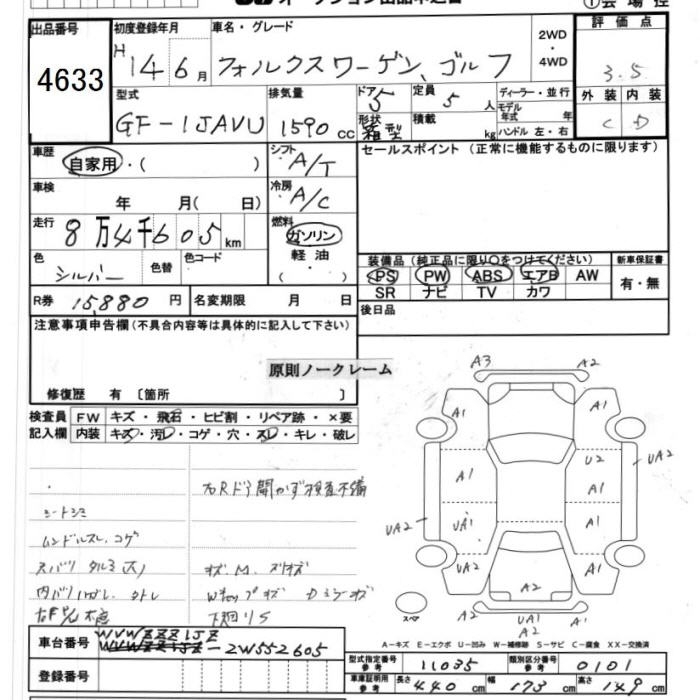 出品番号 初度登録年月 車名・グレード 2WD・4WD 評価点
4633 H 14年 6月 フォルクスワーゲン、ゴルフ 3.5
型式 排気量 ドア 5 定員 5人 ディーラー・並行 外装 内装
GF-1JAVU 1590cc 形状 箱型 積載 kg モデル年式 年 C D
ハンドル 左・右
車歴 自家用・( ) シフト A/T セールスポイント(正常に機能するものに限ります)
車検 年 月( 日) 冷房 A/C
走行 8万4千605km 燃料 ガソリン
軽油
色 シルバー 色替 色コード ・( )
装備品(純正品に限り○をつけてください) 新車保証書
PS PW ABS エアB AW 有・無
SR ナビ TV カワ
R券 15,880円 名変期限 月 日 後日品
注意事項申告欄(不具合内容等は具体的に記入して下さい)
原則ノークレーム
修復歴 有〔箇所 〕
検査員 FW キズ・飛石・ヒビ割・リペア跡・×要
記入欄 内装 キズ・汚レ・コゲ・穴・スレ・キレ・破レ
右Rドア開かず検査不備
シートシミ
ハンドルスレ、コゲ
A3 A2
A1 A1
A1 U2 UA2
A1
UA2 UA1 A1
UA2 A2 A1
スペア A2 UA1 A2
A-キズ E-エクボ U-凹み W-補修跡 S-サビ C-腐食 XX-交換済
車台番号 WVWZZZ1JZ-2W552605
登録番号
型式指定番号 参考 11035 類別区分番号 参考 0101
車庫証明用 参考 長さ 440cm 幅 173cm 高さ 149cm